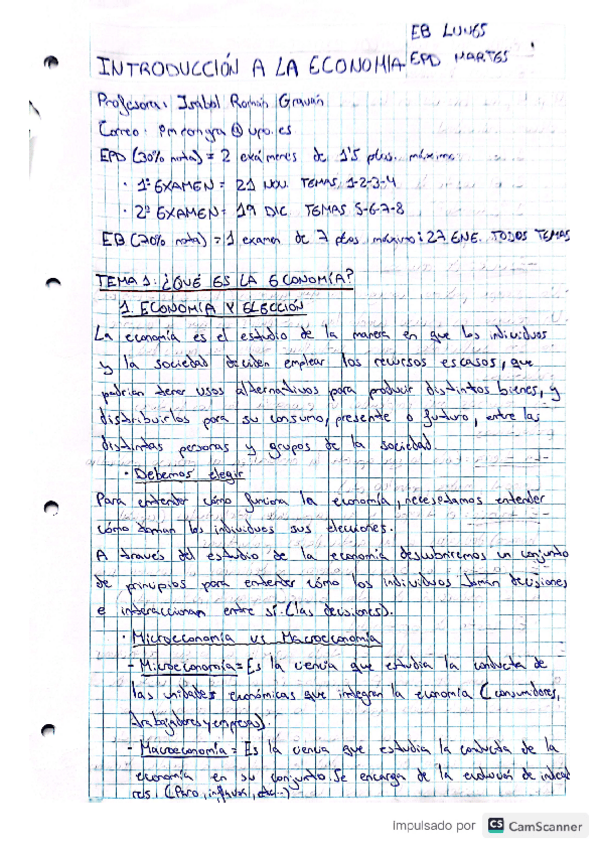 EB LUNES
INTRODUCCIÓN A LA ECONOMIA EPD MARTES
Profesora: Isabel Román
Correo: @upo.es
EPD (30% nota) = 2 exámenes de 1'5 ptos. máximo
· 1º EXAMEN = 21 NOV. TEMAS 1-2-3-4
· 2º EXAMEN = 19 DIC TEMAS 5-6-7-8
EB (70% nota) = 1 examen de 7 ptos máximo: 27 ENE. TODOS TEMAS
TEMA 1. ¿QUÉ ES LA ECONOMÍA?
1. ECONOMIA Y ELECCIÓN
La economía es el estudio de la manera en que los individuos
y la sociedad deciden emplear los recursos escasos, que
podrían tener usos alternativos para producir distintos bienes, y
distribuirlos para su consumo, presente o futuro, entre las
distintas personas y grupos de la sociedad.
· Debemos elegir
Para entender cómo funciona la economía, necesitamos entender
cómo toman los individuos sus elecciones.
A través del estudio de la economía descubriremos un conjunto
de principios para entender cómo los individuos toman decisiones
e interaccionan entre sí. (las decisiones).
· Microeconomía vs Macroeconomía
- Microeconomía = Es la ciencia que estudia la conducta de
las unidades económicas que integran la economía (consumidores,
trabajadores y empresas).
- Macroeconomía = Es la ciencia que estudia la conducta de la
economía en su conjunto. Se encarga de la evolución de indicad
res (Paro, inflación, etc...)
Impulsado por CS CamScanner